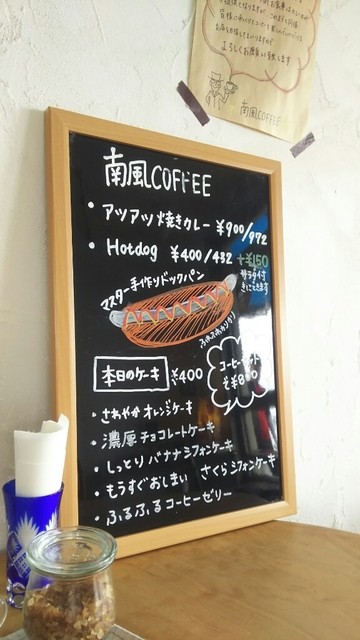 よろしくお願い致します
南風COFFEE
南風COFFEE
・アツアツ焼きカレー ¥900/972
・Hotdog ¥400/432 +¥150
サラダ付
きにできます
マスター手作りドックパン
本日のケーキ ¥400
コーヒーセット
・さわやかオレンジケーキ
・濃厚チョコレートケーキ
・しっとりバナナシフォンケーキ
・もうすぐおしまい さくらシフォンケーキ
・ふるふるコーヒーゼリー